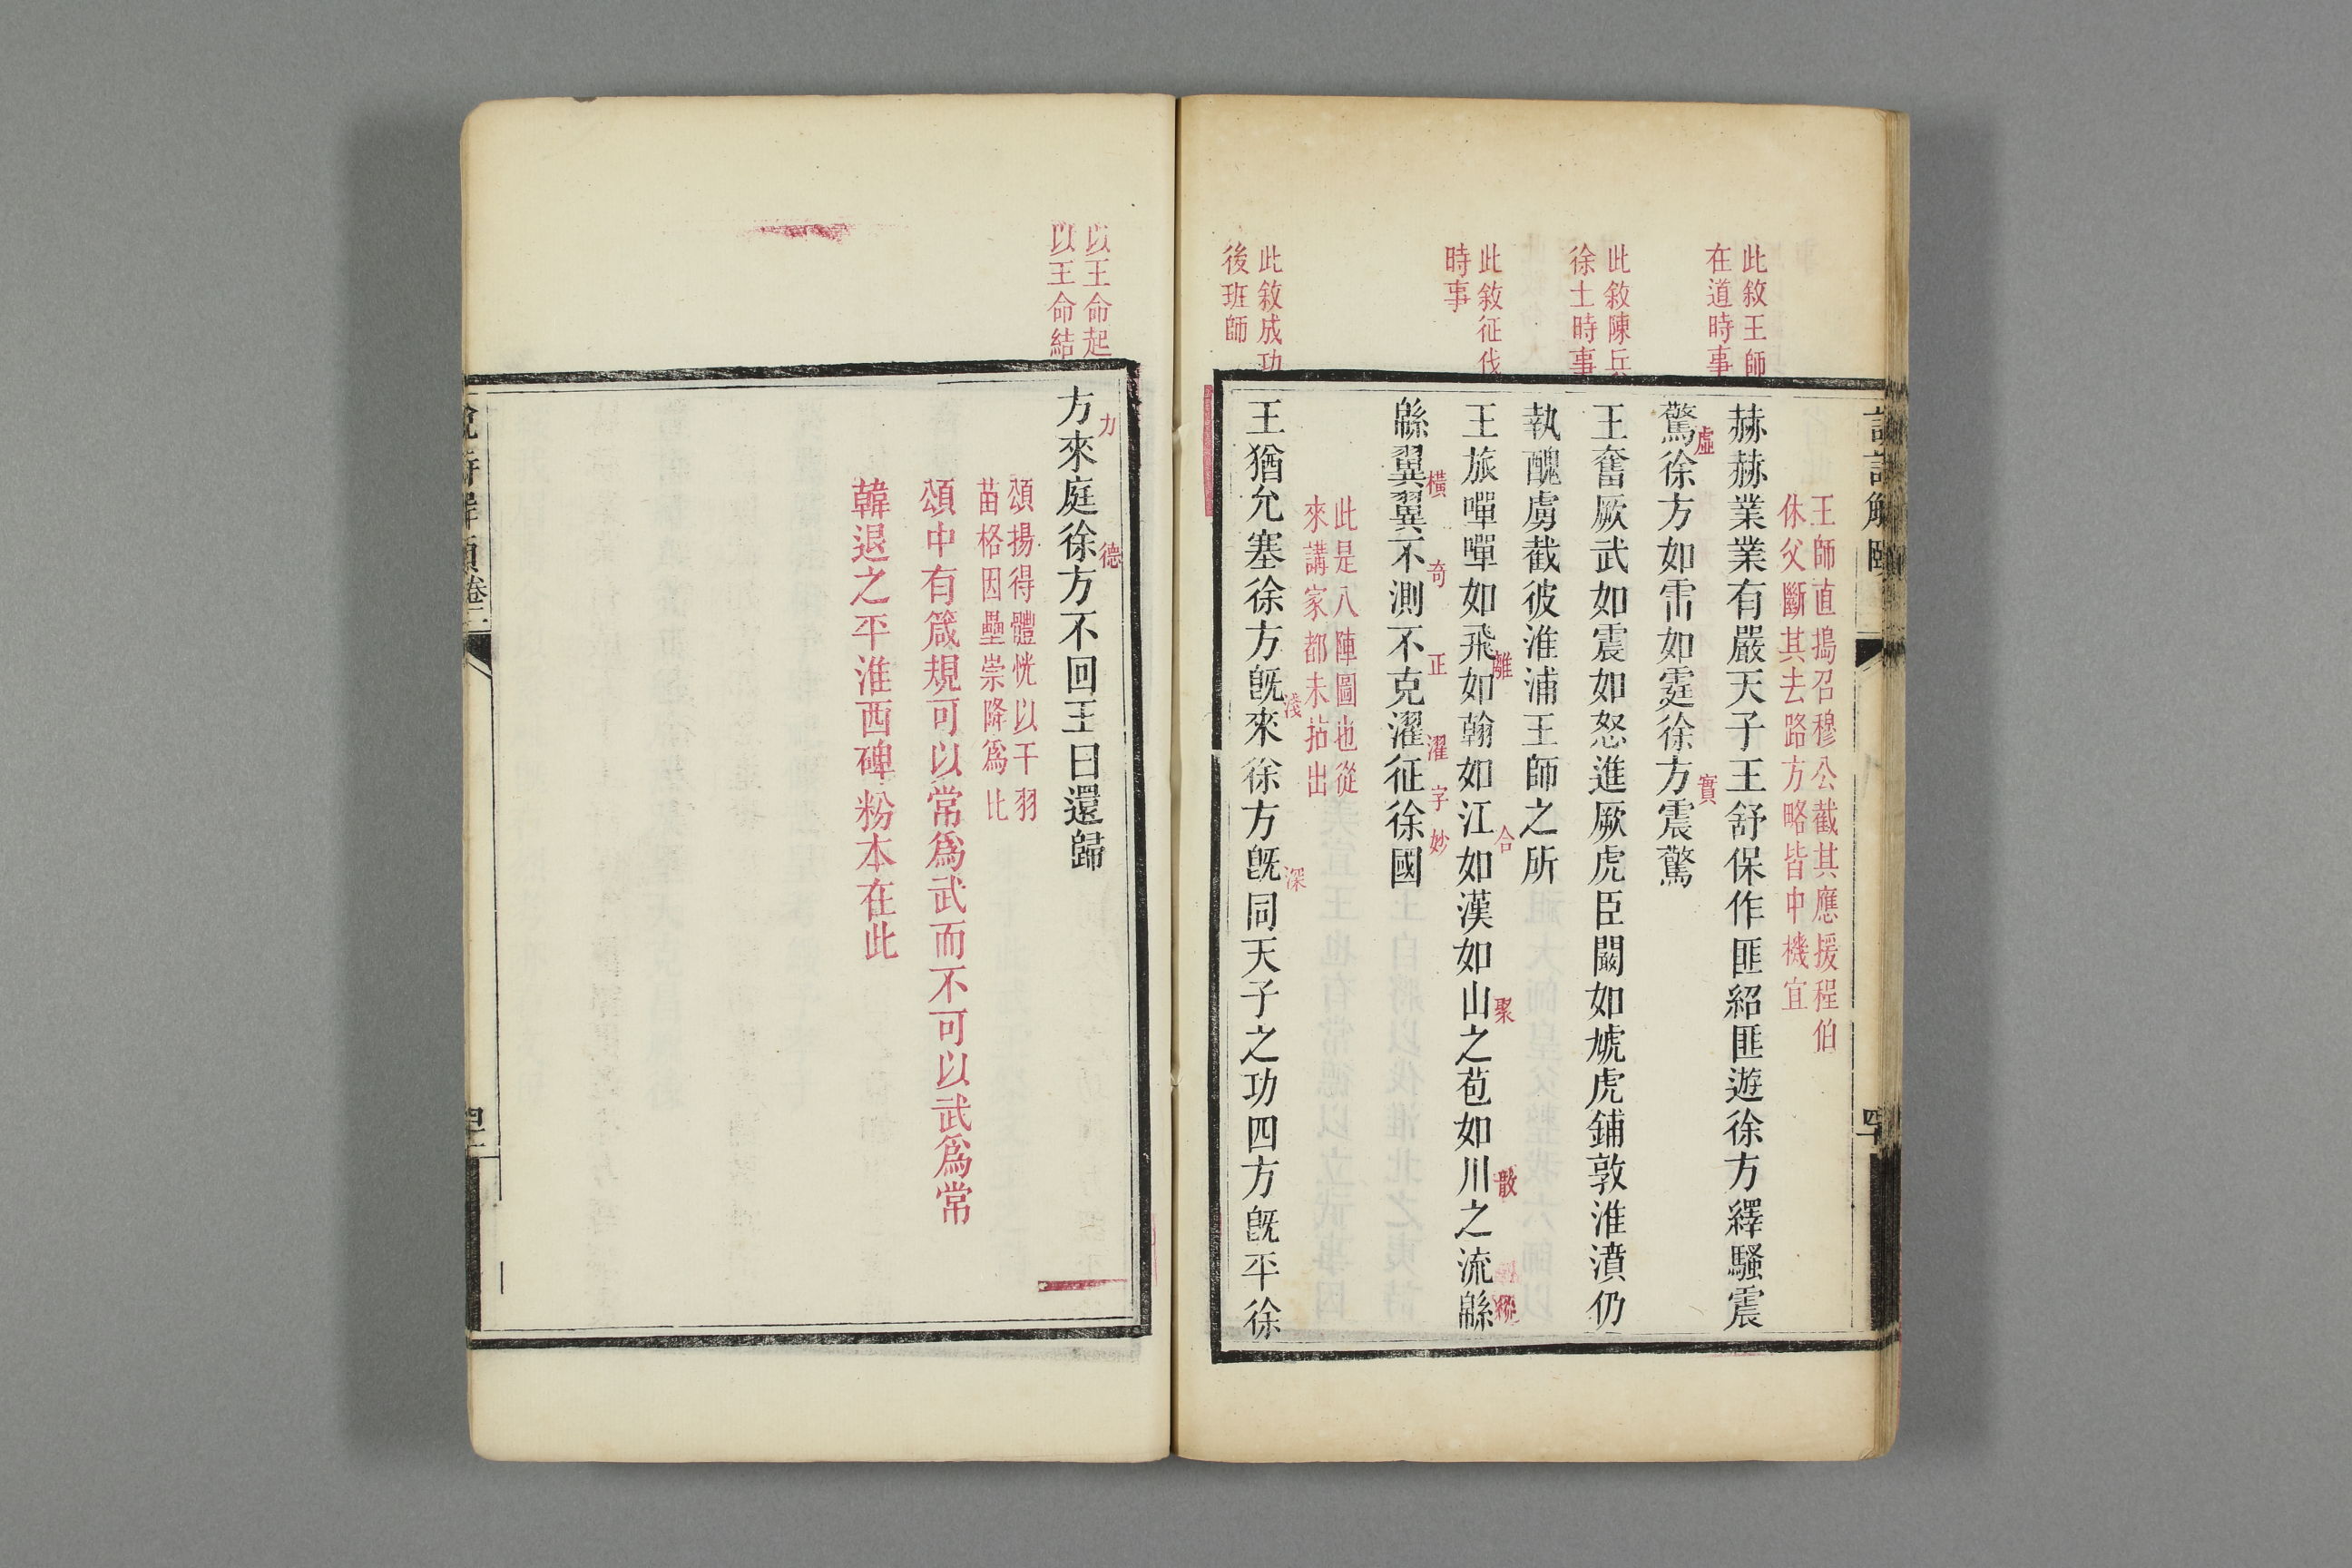 此敘王師
在道時事
此敘陳兵
徐土時事
此敘征伐
時事
此敘成功
後班師
王師直搗召穆公截其應援程伯
休父斷其去路方略皆中機宜
赫赫業業有嚴天子王舒保作匪紹匪遊徐方繹騷震
驚徐方如雷如霆徐方震驚
虛
實
王奮厥武如震如怒進厥虎臣闞如虓虎鋪敦淮濆仍
執醜虜截彼淮浦王師之所
王旅嘽嘽如飛如翰如江如漢如山之苞如川之流緜
離
合
聚
散
縱
緜翼翼不測不克濯征徐國
橫
奇
正
濯字妙
此是八陣圖也從
來講家都未拈出
王猶允塞徐方旣來徐方旣同天子之功四方旣平徐
淺
深
以王命起
以王命結
方來庭徐方不回王曰還歸
力
德
頌揚得體恍以干羽
苗格因壘崇降爲比
頌中有箴規可以常爲武而不可以武爲常
韓退之平淮西碑粉本在此
說詩解頤
卷二